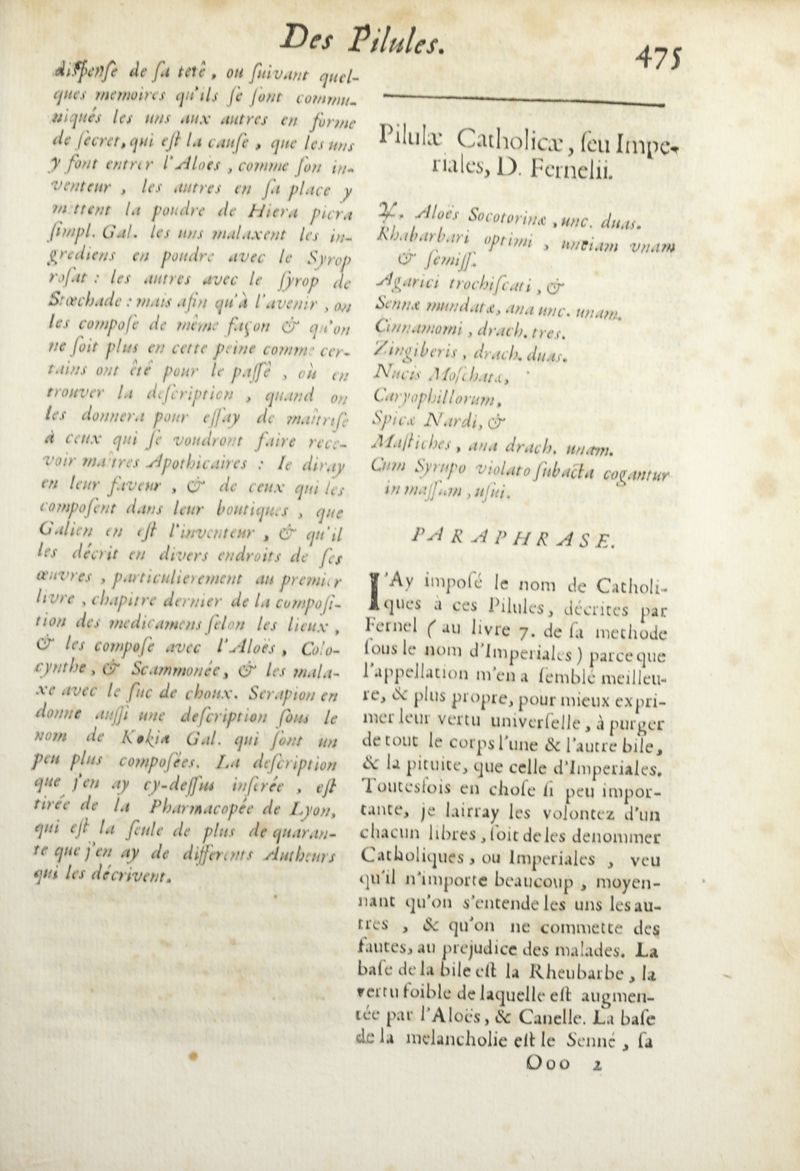 Des Pilules.
475
dispense de sa tetê, ou suivant quel-
ques memoires qu'ils se sont commu-
niqués les uns aux autres en forme
de secret, qui est la cause, que les uns
y font entrer l'Aloës, comme son in-
venteur, les autres en sa place y
mettent la poudre de Hiera picra
simpl. Gal. les uns malaxent les in-
grediens en poudre avec le Syrop
rosat : les autres avec le syrop de
Stœchade : mais afin qu'à l'avenir, on
les compose de même façon & qu'on
ne soit plus en cette peine comme cer-
tains ont êté pour le passê, où en
trouver la description, quand on
les donnera pour essay de maîtrise
à ceux qui se voudront faire rece-
voir maîtres Apothicaires : Ie diray
en leur faveur, & de ceux qui les
composent dans leur boutiques, que
Galien en est l'inventeur, & qu'il
les décrit en divers endroits de ses
œuvres, particulierement au premier
livre, chapitre dernier de la composi-
tion des medicamens selon les lieux,
& les compose avec l'Aloës, Colo-
cynthe, & Scammonée, & les mala-
xe avec le suc de choux. Serapion en
donne aussi une description sous le
nom de Kokia Gal. qui sont un
peu plus composées. La description
que j'en ay cy-dessus inserée, est
tirée de la Pharmacopée de Lyon,
qui est la seule de plus de quaran-
te que j'en ay de differents Autheurs
qui les décrivent.
Pilulæ Catholicæ, seu Impe-
riales, D. Fernelii.
℞. Aloës Socotorinæ, unc. duas.
Rhabarbari optimi, unciam vnam
& semiss.
Agarici trochiscati, &
Sennæ mundatæ, ana unc. unam.
Cinnamomi, drach. tres.
Zingiberis, drach. duas.
Nucis Moschatæ,
Caryophillorum,
Spicæ Nardi, &
Mastiches, ana drach. unam.
Cum Syrupo violato subacta cogantur
in massam, usui.
PARAPHRASE.
I'Ay imposé le nom de Catholi-
ques à ces Pilules, décrites par
Fernel (au livre 7. de sa methode
sous le nom d'Imperiales) parce que
l'appellation m'en a semblé meilleu-
re, & plus propre, pour mieux expri-
mer leur vertu universelle, à purger
de tout le corps l'une & l'autre bile,
& la pituite, que celle d'Imperiales.
Toutesfois en chose si peu impor-
tante, je lairray les volontez d'un
chacun libres, soit de les denommer
Catholiques, ou Imperiales, veu
qu'il n'importe beaucoup, moyen-
nant qu'on s'entende les uns les au-
tres, & qu'on ne commette des
fautes, au prejudice des malades. La
base de la bile est la Rheubarbe, la
vertu foible de laquelle est augmen-
tée par l'Aloës, & Canelle. La base
de la melancholie est le Senné, sa
Ooo 2